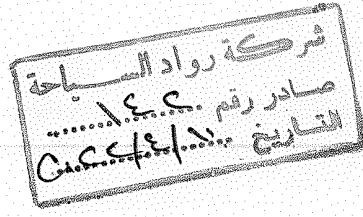 شركة رواد السياحة
صادر رقم ١٤٢
التاريخ ٢٠٢٢/٤/١٠